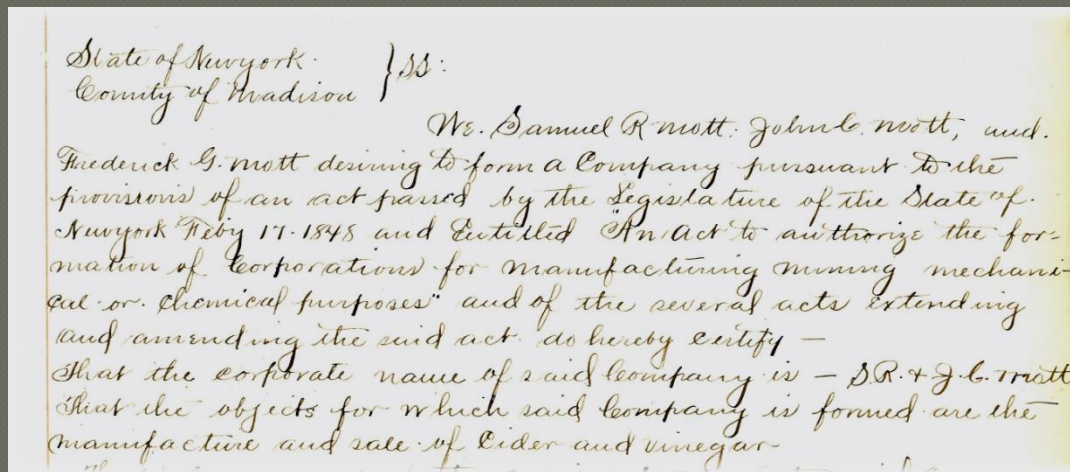 State of Newyork.
County of Madison } SS:
We. Samuel R Mott. John C. Mott, and.
Frederick G. Mott desiring to form a Company pursuant to the
provisions of an act passed by the Legislature of the State of.
Newyork Feby 17. 1848 and Entitled "An Act to authorize the for-
mation of Corporations for manufacturing mining mechani-
cal or. Chemical purposes" and of the several acts extending
and amending the said act. do hereby certify —
That the corporate name of said Company is — S.R. & J.C. Mott
That the objects for which said Company is formed are the
manufacture and sale of Cider and Vinegar